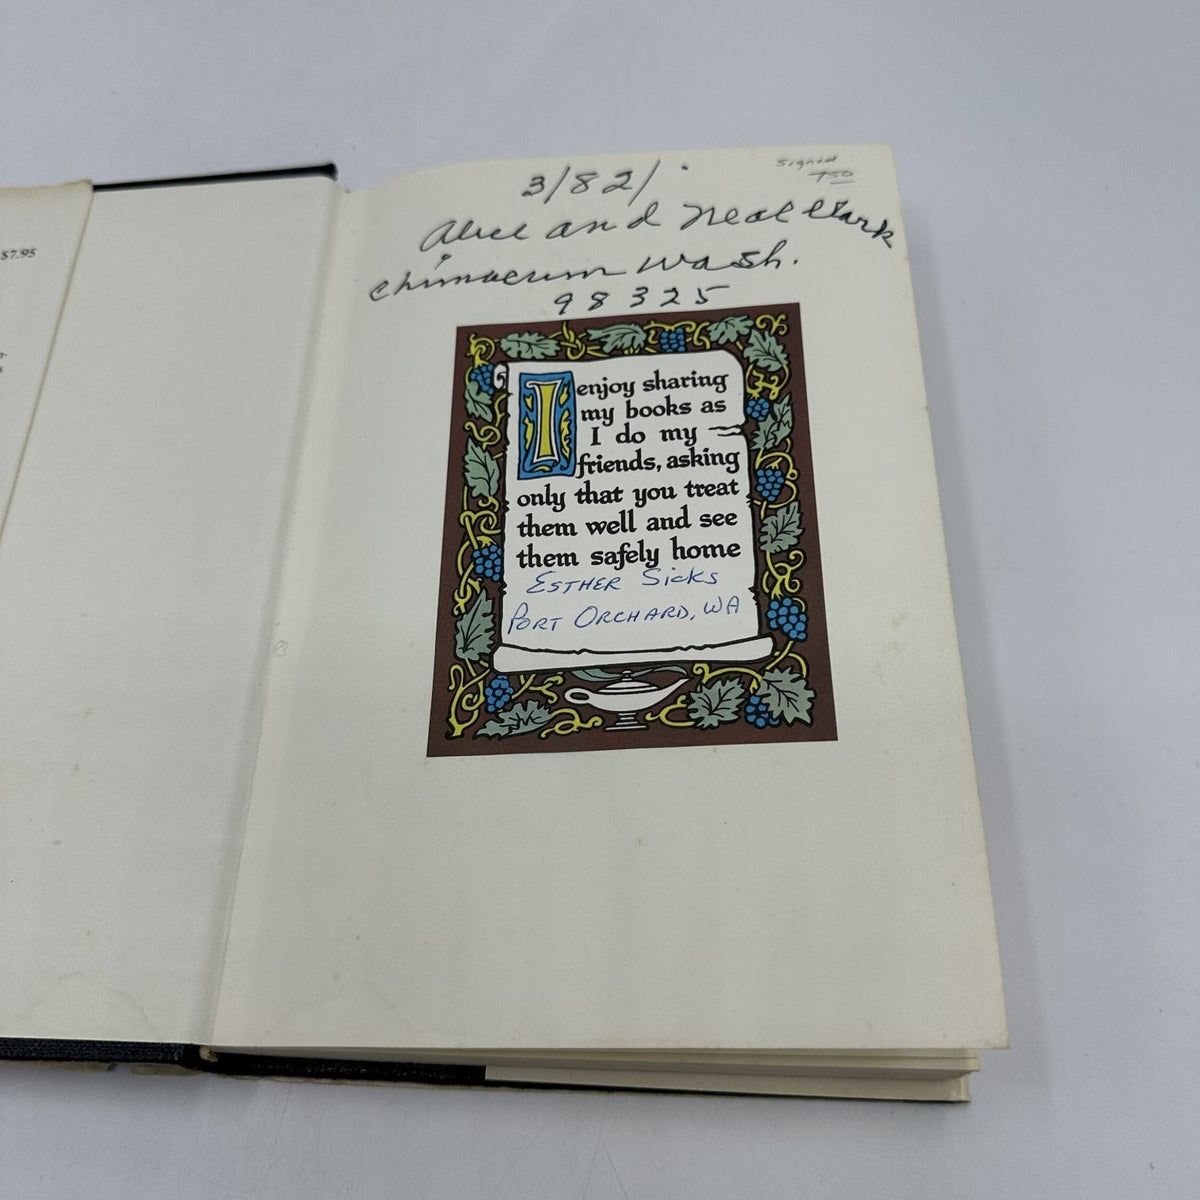 $7.95
signed
750
3/82/
Alice and Neal Clark
Chimacum Wash.
98325
I enjoy sharing
my books as
I do my
friends, asking
only that you treat
them well and see
them safely home
ESTHER SICKS
PORT ORCHARD, WA